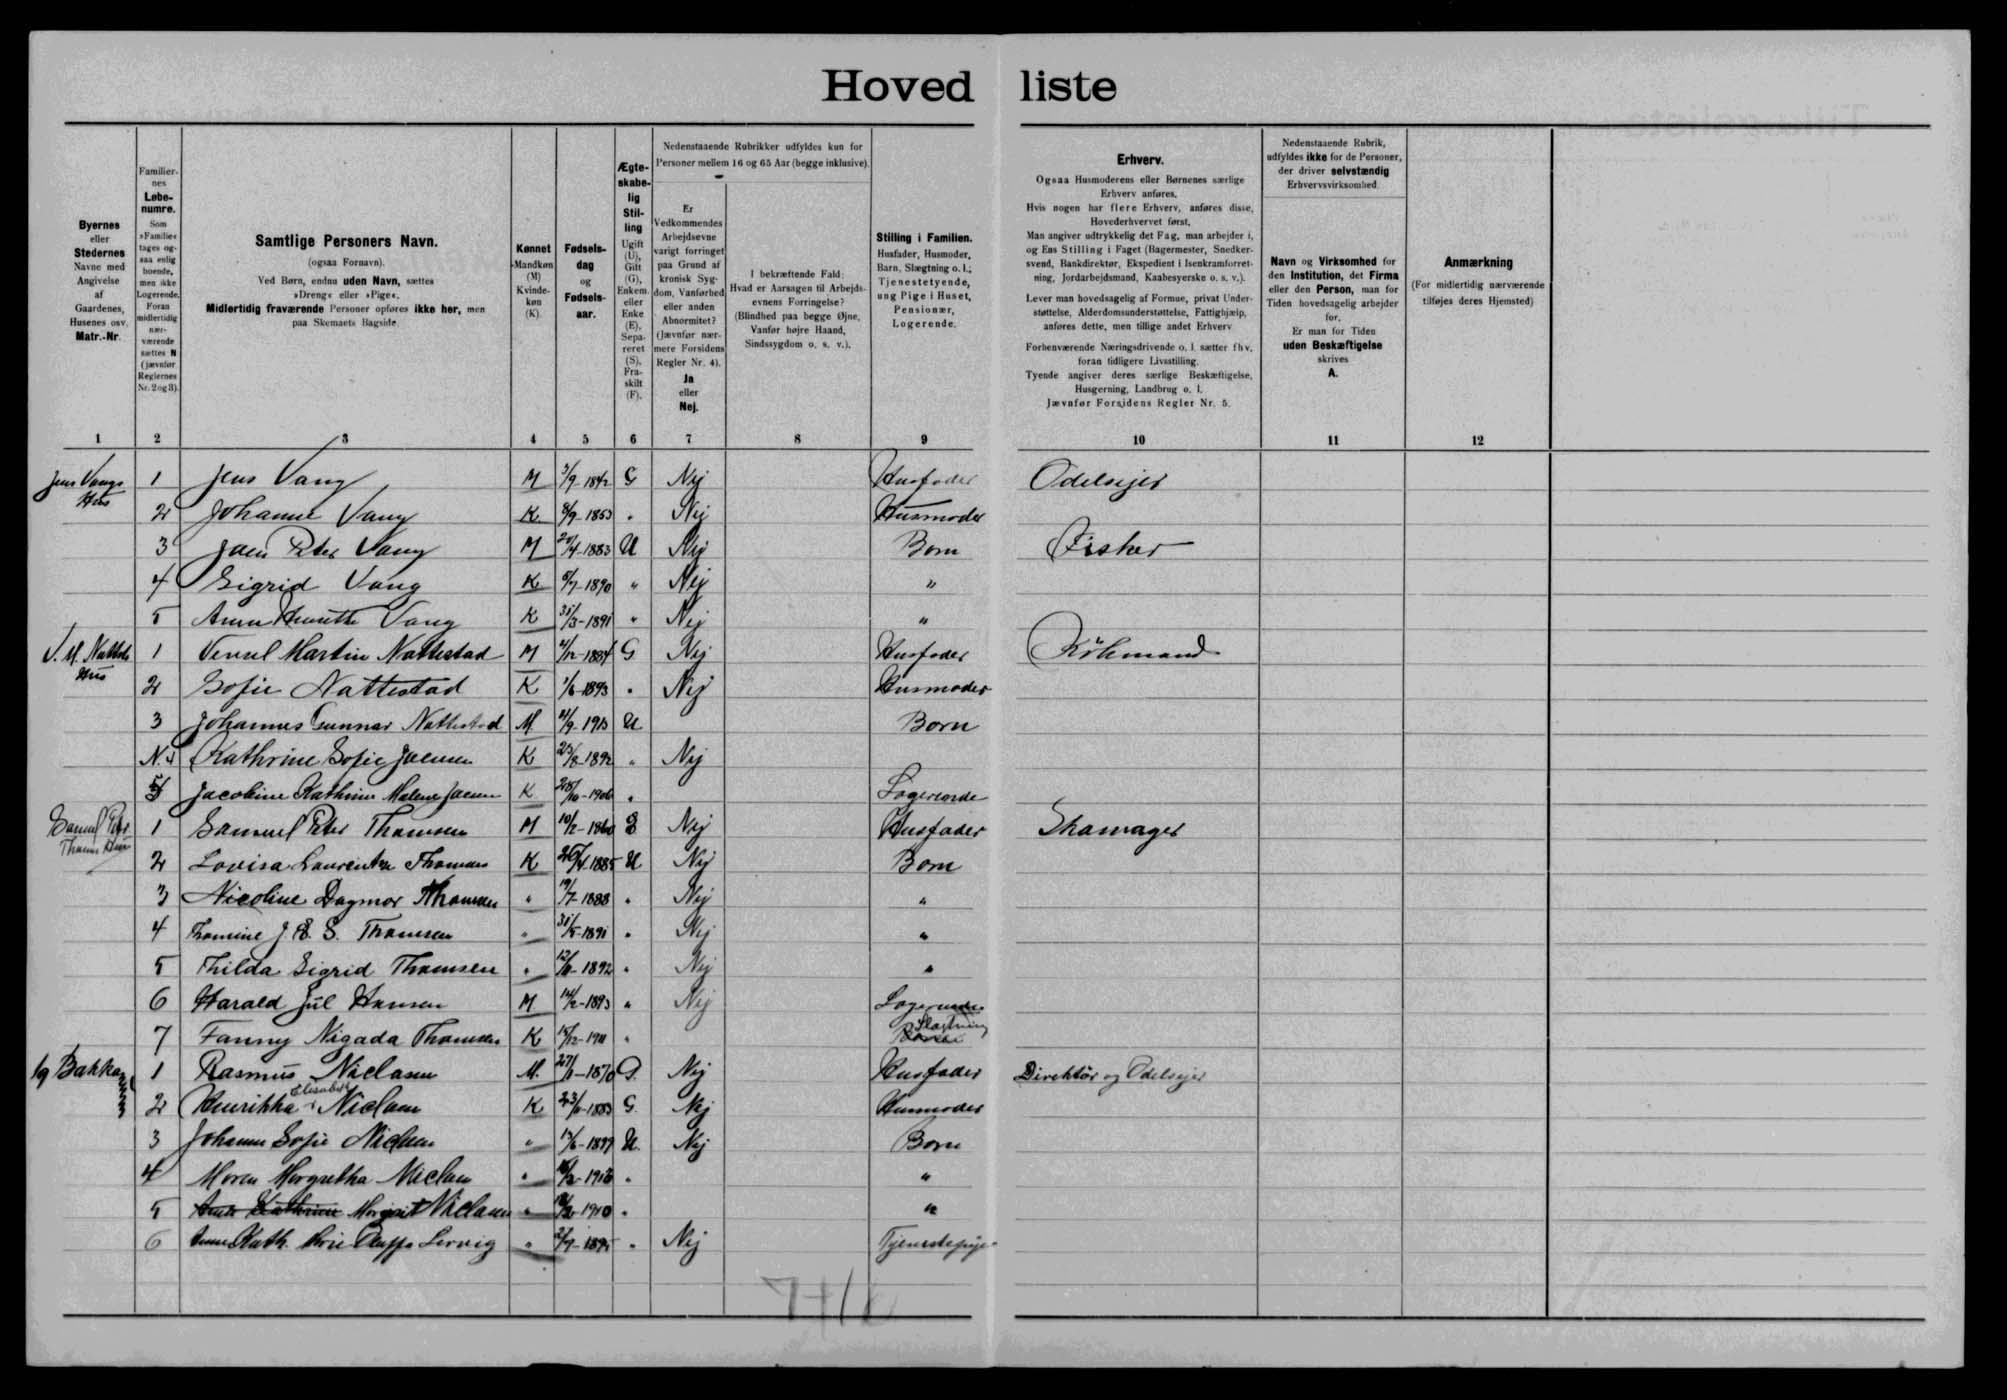 Hoved liste
Byernes
eller
Stedernes
Navne med
Angivelse
af
Gaardenes,
Husenes osv.
Matr.-Nr.
Familier-
nes
Løbe-
numre.
Som
»Familie«
tages og-
saa enlig
boende,
men ikke
Logerende.
Foran
midlertidig
nær-
værende
sættes N
(jævnfør
Reglernes
Nr. 2 og 3).
Samtlige Personers Navn.
(ogsaa Fornavn).
Ved Børn, endnu uden Navn, sættes
»Dreng« eller »Pige«.
Midlertidig fraværende Personer opføres ikke her, men
paa Skemaets Bagside.
Kønnet
Mandkøn
(M)
Kvinde-
køn
(K).
Fødsels-
dag
og
Fødsels-
aar.
Ægte-
skabe-
lig
Stil-
ling
Ugift
(U),
Gift
(G),
Enkem.
eller
Enke
(E),
Sepa-
reret
(S),
Fra-
skilt
(F).
Nedenstaaende Rubrikker udfyldes kun for
Personer mellem 16 og 65 Aar (begge inklusive).
Er
Vedkommendes
Arbejdsevne
varigt forringet
paa Grund af
kronisk Syg-
dom, Vanførhed
eller anden
Abnormitet?
(Jævnfør nær-
mere Forsidens
Regler Nr. 4).
Ja
eller
Nej.
I bekræftende Fald:
Hvad er Aarsagen til Arbejds-
evnens Forringelse?
(Blindhed paa begge Øjne,
Vanfør højre Haand,
Sindssygdom o. s. v.).
Stilling i Familien.
Husfader, Husmoder,
Barn, Slægtning o. l.;
Tjenestetyende,
ung Pige i Huset,
Pensionær,
Logerende.
Erhverv.
Ogsaa Husmoderens eller Børnenes særlige
Erhverv anføres.
Hvis nogen har flere Erhverv, anføres disse,
Hovederhvervet først.
Man angiver udtrykkelig det Fag, man arbejder i,
og Ens Stilling i Faget (Bagermester, Snedker-
svend, Bankdirektør, Ekspedient i Isenkramforret-
ning, Jordarbejdsmand, Kaabesyerske o. s. v.).
Lever man hovedsagelig af Formue, privat Under-
støttelse, Alderdomsunderstøttelse, Fattighjælp,
anføres dette, men tillige andet Erhverv
Forhenværende Næringsdrivende o. l. sætter fhv.
foran tidligere Livsstilling.
Tyende angiver deres særlige Beskæftigelse,
Husgerning, Landbrug o. l.
Jævnfør Forsidens Regler Nr. 5.
Nedenstaaende Rubrik,
udfyldes ikke for de Personer,
der driver selvstændig
Erhvervsvirksomhed.
Navn og Virksomhed for
den Institution, det Firma
eller den Person, man for
Tiden hovedsagelig arbejder
for.
Er man for Tiden
uden Beskæftigelse
skrives
A.
Anmærkning
(For midlertidig nærværende
tilføjes deres Hjemsted)
1 2 3 4 5 6 7 8 9 10 11 12
Jens Vangs Hus 1 Jens Vang M 3/9-1842 G Nej Husfader Odelsejer
2 Johanne Vang K 8/9-1853 " Nej Husmoder
3 Joen Peter Vang M 20/4-1883 U Nej Barn Fisker
4 Sigrid Vang K 6/7-1890 " Nej "
5 Anna Vang K 31/3-1891 " Nej "
V. M. Hus 1 Martin Nattestad M 4/12-1884 G Nej Husfader Köbmand
2 Sofie Nattestad K 1/6-1893 " Nej Husmoder
3 Johannes Gunnar Nattestad M 4/9-1913 U Barn
N.4 Kathrine Sofie Joensen K 25/8-1892 " Nej
5 Jacobine Kathrine Malene Joensen K 28/10-1906 " Logerende
Samuel Petr. 1 Samuel Peter Thomsen M 10/2-1860 E Nej Husfader Skomager
2 Lovisa Laurentze Thomsen K 26/4-1885 U Nej Barn
3 Nicoline Dagmar Thomsen " 19/7-1888 " Nej "
4 Thomine J. E. S. Thomsen " 31/5-1891 " Nej "
5 Thilda Sigrid Thomsen " 1892 " Nej "
6 Harald Jul Hansen M 14/2-1893 " Nej Logerende
7 Fanny Nigada Thomsen K 15/12-1911 " Slægtning
Bakka 1 Rasmus Niclasen M. 27/11-1870 G. Nej Husfader Direktör og Odelsejer
2 Henrikka Elisabet Niclasen K 23/11-1883 G. Nej Husmoder
3 Johanne Sofie Niclasen " 15/6-1899 U. Nej Barn
4 Maren Margretha Niclasen " "  "
5 Margrit Niclasen " 1910 " "
6 Anna Kath. Lervig " 2/9-1895 " Nej Tjenestepige